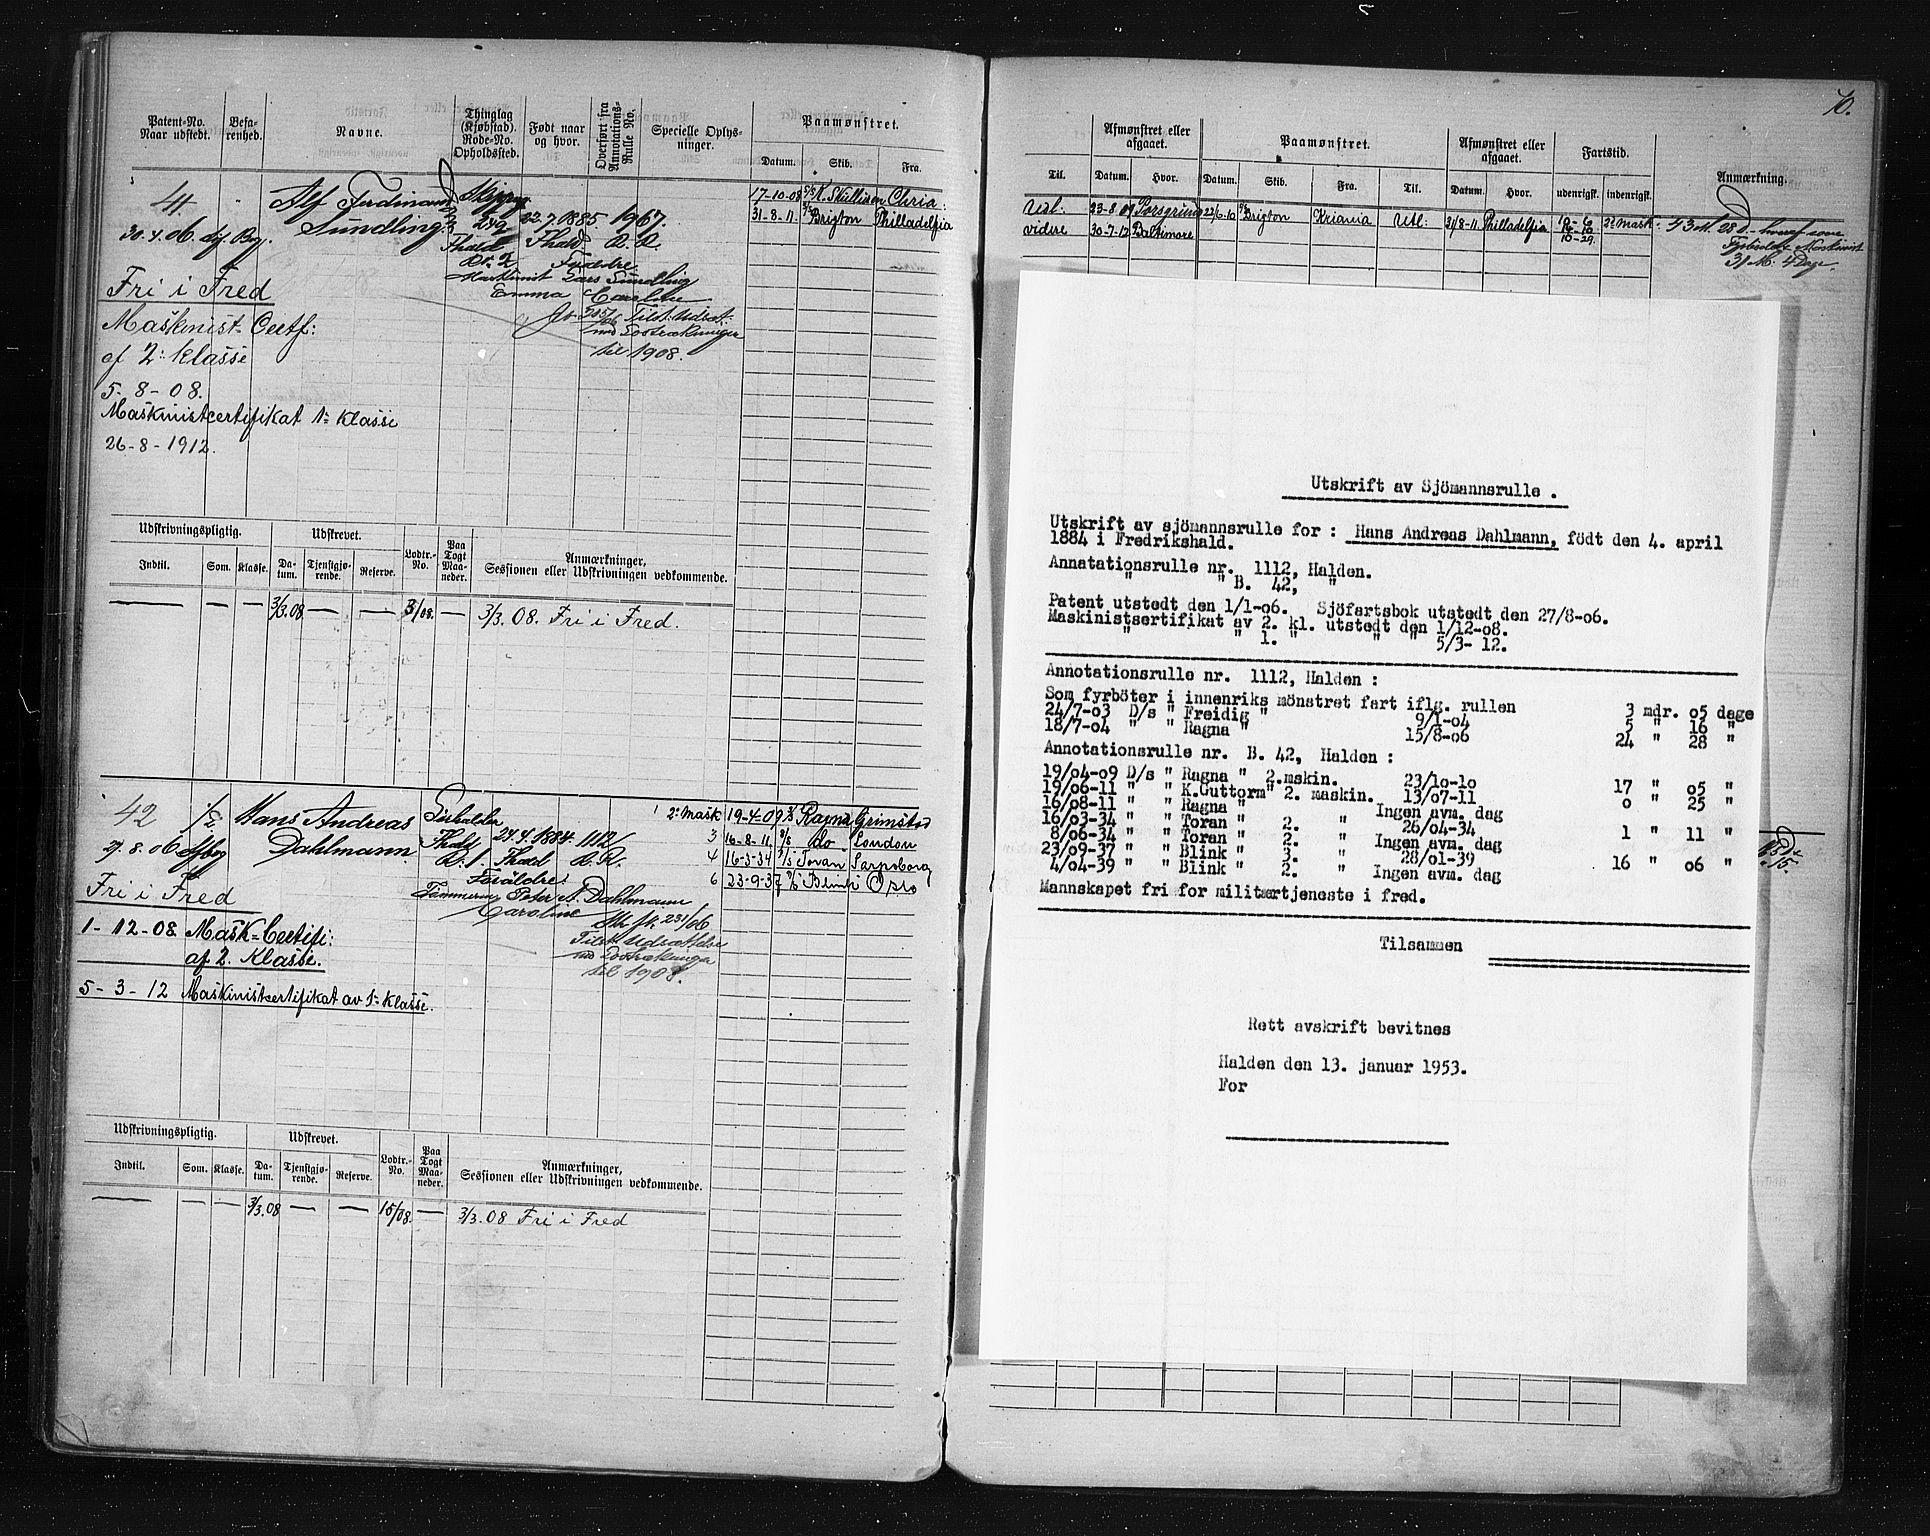 Patent-No.
Naar udstedt.
Befa-
renhed.
Navne.
Thinglag
(Kjøbstad).
Rode-No.
Opholdssted.
Født naar
og hvor.
Overført fra
Annotations-
Rulle No.
Specielle Oplys-
ninger.
Paamønstret.
Datum. Skib. Fra.
41. Alf Ferdinand
Sundling.
30.4.06.
249 22.7.1885 1967.
Fhald Fhald A.R.
17-10-08 Chria:
31-8-11. Brigton Philladelfia
Lars Sundling
Emma Caroline
til 1908.
Fri i Fred
Maskinist-Certf:
af 2: Klasse
5-8-08.
Maskinistcertifikat 1ᵉ Klasse
26-8-1912.
Udskrivningspligtig. Udskrevet. Lodtr.-
No.
Paa
Togt
Maa-
neder.
Anmærkninger,
Sessionen eller Udskrivningen vedkommende.
Indtil. Som. Klasse. Da-
tum. Tjenstgjø-
rende. Reserve.
— — — 3/3.08 — — 3/08. — 3/3.08. Fri i Fred.
42 1/2 Hans Andreas
Dahlmann
Fhald 24.4.1884. 1112
Fhald A.R.
Forældre:
Peter A. Dahlmann
Caroline
til 1908.
1 2ᵉ Mask 19-4-09 Ragna Grimstad
3 16-8-11. Do London
4 16-3-34 Toran Sarpsborg
6 23-9-37 Blink Oslo
Fri i Fred
1-12-08 Mask-Certifi:
af 2. Klasse.
5-3-12 Maskinistcertifikat av 1ᵉ Klasse.
Udskrivningspligtig. Udskrevet. Lodtr.-
No.
Paa
Togt
Maa-
neder.
Anmærkninger,
Sessionen eller Udskrivningen vedkommende.
Indtil. Som. Klasse. Da-
tum. Tjenstgjø-
rende. Reserve.
— — — 3/3.08 — — 15/08. — 3/3.08 Fri i Fred
70.
Afmønstret eller
afgaaet.
Paamønstret.
Afmønstret eller
afgaaet.
Fartstid.
Anmærkning.
Til. Datum. Hvor. Datum. Skib. Fra. Til. Datum. Hvor. udenrigsk. indenrigsk.
Udl: 23-8-09 Porsgrund 22/6-10 Brigton Kriania Utl: 31/8-11 Philladelfia 2ᵉ Mask. 43 M 28 D.
videre 30-7-12 Baltimore
10-29.
31 M: 4 Dage.
Utskrift av Sjömannsrulle .
Utskrift av sjömannsrulle for : Hans Andreas Dahlmann, födt den 4. april
1884 i Fredrikshald.
Annatationsrulle nr. 1112, Halden.
" " B. 42, "
Patent utstedt den 1/1-06. Sjöfartsbok utstedt den 27/8-06.
Maskinistsertifikat av 2. kl. utstedt den 1/12-08.
" " 1. " " " 5/3- 12.
Annotationsrulle nr. 1112, Halden :
Som fyrböter i innenriks mönstret fart iflg. rullen 3 mdr. 05 dage
24/7-03 D/s " Freidig " 9/1-04 5 " 16 "
18/7-04 " " Ragna " 15/8-06 24 " 28 "
Annotationsrulle nr. B. 42, Halden :
19/04-09 D/s " Ragna " 2.mskin. 23/10-10 17 " 05 "
19/06-11 " " K.Guttorm" 2. maskin. 13/07-11 0 " 25 "
16/08-11 " " Ragna " Ingen avm. dag
16/03-34 " " Toran " 2. " 26/04-34 1 " 11 "
8/06-34 " " Toran " 2. " Ingen avm. dag
23/09-37 " " Blink " 3. " 28/01-39 16 " 06 "
4/04-39 " " Blink " 2. " Ingen avm. dag
Mannskapet fri for militærtjeneste i fred.
Tilsammen
Rett avskrift bevitnes
Halden den 13. januar 1953.
For